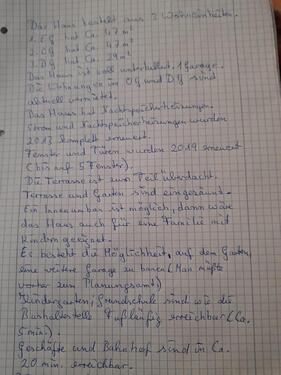 Das Haus besteht aus 3 Wohneinheiten.
1. EG hat Ca. 47 m²
2. OG hat Ca. 47 m²
3. DG hat Ca. 29 m²
Das Haus ist voll unterkellert. 1 Garage.
Die Wohnungen im OG und DG sind
aktuell vermietet.
Das Haus hat Nachtspeicherheizungen.
Strom und Nachtspeicherheizungen wurden
2013 komplett erneuert.
Fenster und Türen wurden 2019 erneuert
(bis auf 5 Fenster).
Die Terrasse ist zum Teil überdacht.
Terrasse und Garten sind eingezäunt.
Ein Innenumbau ist möglich, dann wäre
das Haus auch für eine Familie mit
Kindern geeignet.
Es besteht die Möglichkeit, auf dem Garten
eine weitere Garage zu bauen (Man müßte
vorher zum Planungsamt)
Kindergarten, Grundschule sind wie die
Bushaltestelle Fußläufig erreichbar (Ca.
5 min).
Geschäfte und Bahnhof sind in Ca.
20 min. erreichbar.